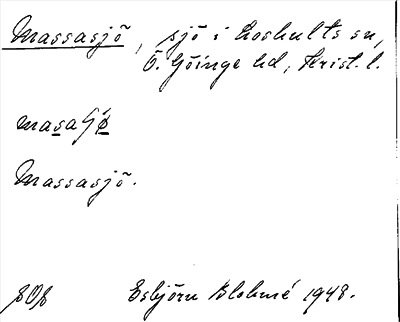 Massasjö, sjö i Loshults sn,
Ö. Göinge hd, Krist. l.
Massasjö.
SOS Esbjörn Blohmé 1948.